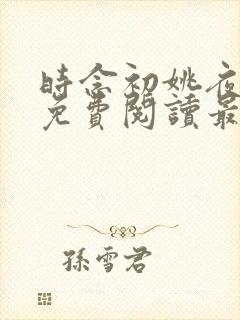 時念初姚夜
免費閱讀最
孫雪君